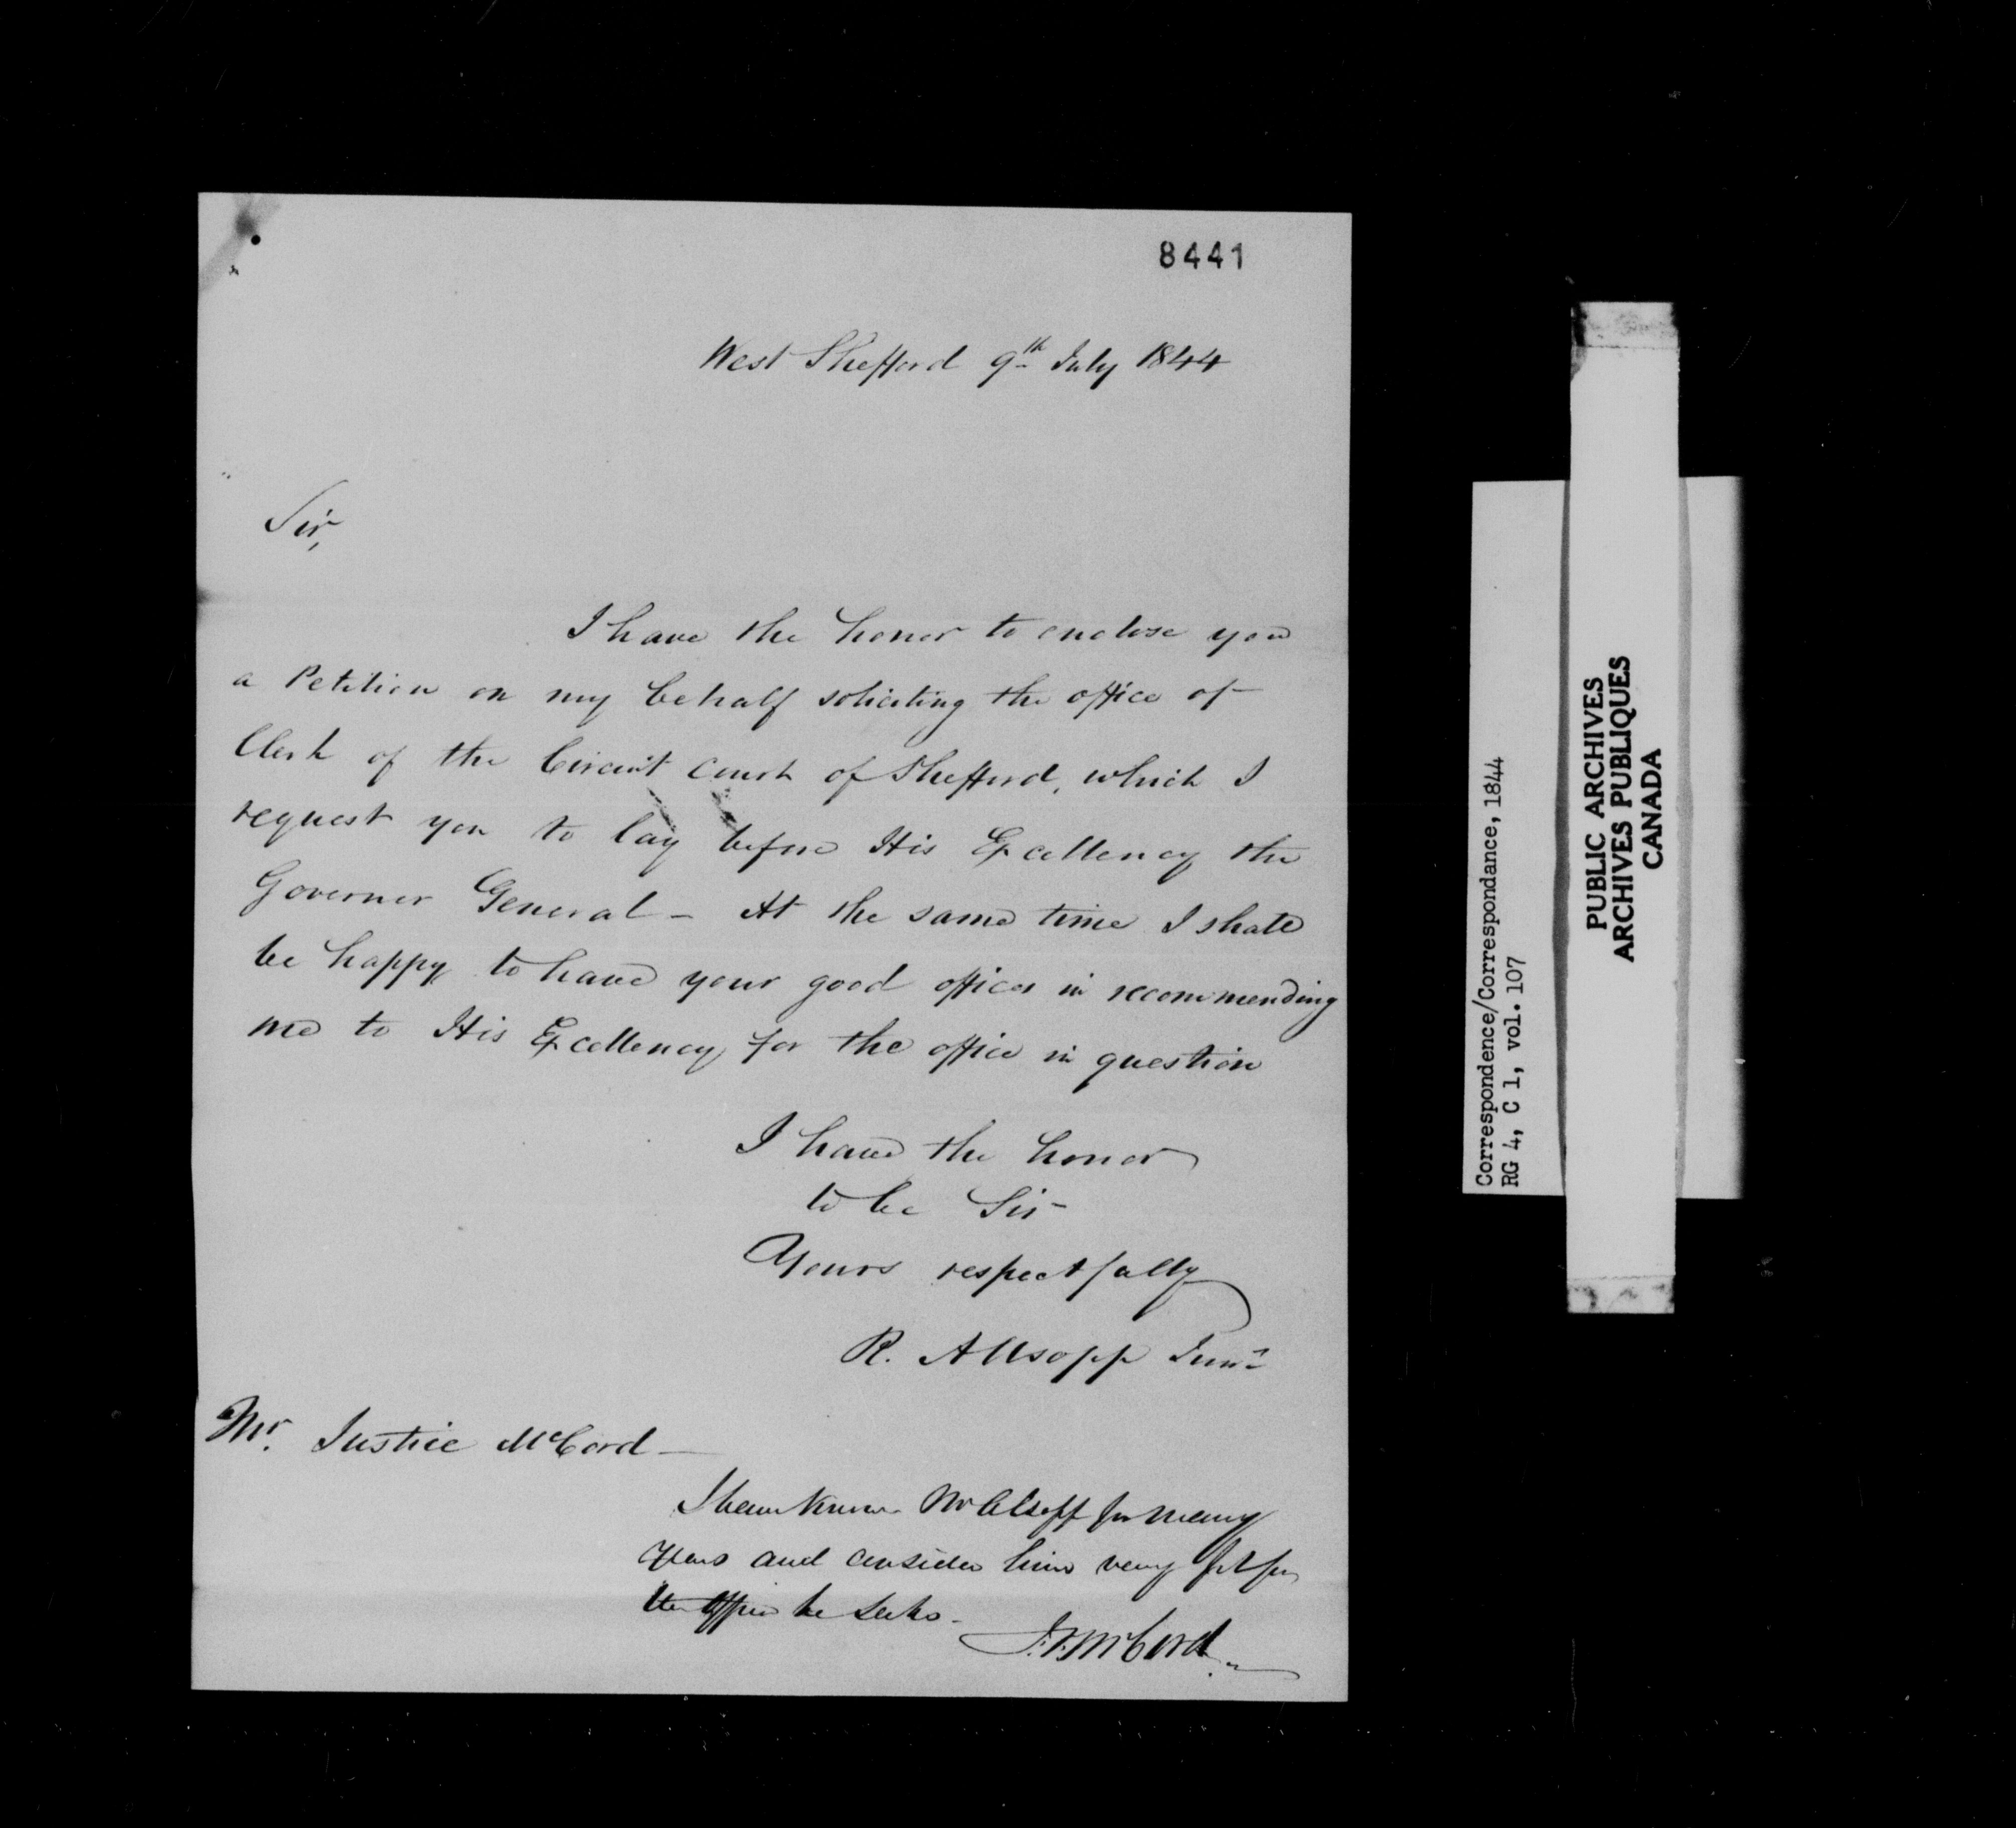 8441
West Shefford 9th July 1844
Sir,
I have the honor to enclose you
a Petition on my behalf soliciting the office of
Clerk of the Circuit Court of Shefford, which I
request you to lay before His Excellency the
Governor General - At the same time I shall
be happy to have your good offices in recommending
me to His Excellency for the office in question
I have the honor
to be Sir
Yours respectfully
R. Allsopp Junr
Mr. Justice McCord
I have known Mr Alsopp for many
years and consider him very fit for
the office he seeks -
McCord
Correspondence/Correspondance, 1844
RG 4, C 1, vol. 107
PUBLIC ARCHIVES
ARCHIVES PUBLIQUES
CANADA